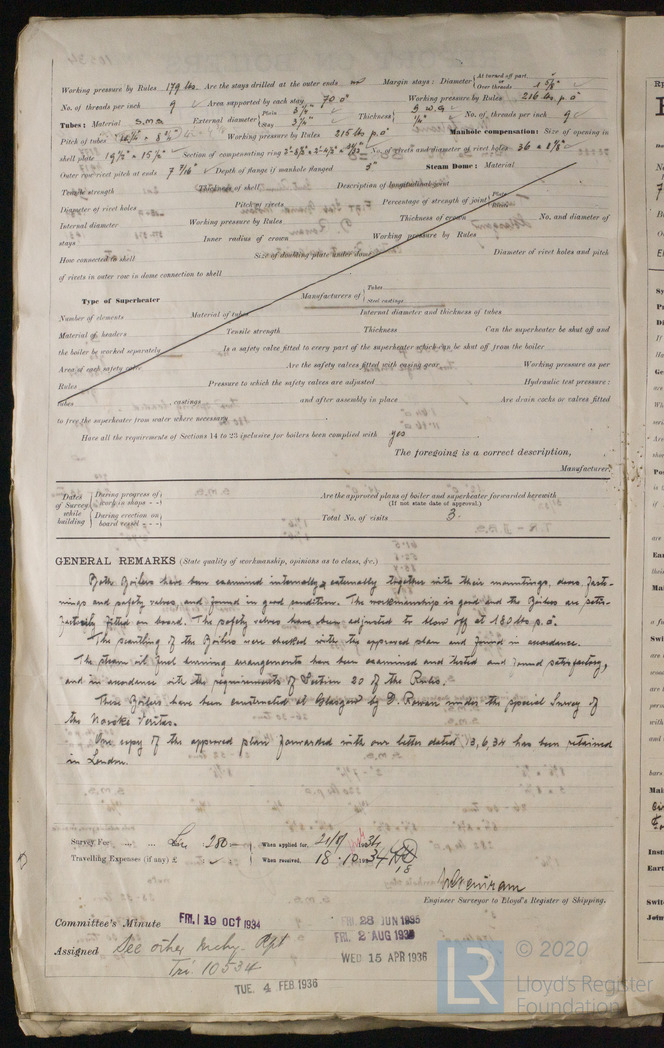 Working pressure by Rules 179 lbs. Are the stays drilled at the outer ends no Margin stays: Diameter { At turned off part, Over threads 1 5/8"
No. of threads per inch 9 Area supported by each stay 70 □" Working pressure by Rules 216 lbs. p. □"
Tubes: Material S.M.S. External diameter { Plain Stay Thickness { 9 W.G. No. of threads per inch 9
Pitch of tubes Working pressure by Rules 215 lbs p.□" Manhole compensation: Size of opening in
shell plate 19 1/2" × 15 1/2" Section of compensating ring No. of rivets and diameter of rivet holes 36 × 1 1/8"
Outer row rivet pitch at ends 7 7/16" Depth of flange if manhole flanged 3" Steam Dome: Material
Tensile strength Thickness of shell Description of longitudinal joint
Diameter of rivet holes Pitch of rivets Percentage of strength of joint { Plate Rivets
Internal diameter Working pressure by Rules Thickness of crown No. and diameter of
stays Inner radius of crown Working pressure by Rules
How connected to shell Size of doubling plate under dome Diameter of rivet holes and pitch
of rivets in outer row in dome connection to shell
Type of Superheater Manufacturers of { Tubes Steel castings
Number of elements Material of tubes Internal diameter and thickness of tubes
Material of headers Tensile strength Thickness Can the superheater be shut off and
the boiler be worked separately Is a safety valve fitted to every part of the superheater which can be shut off from the boiler
Area of each safety valve Are the safety valves fitted with easing gear Working pressure as per
Rules Pressure to which the safety valves are adjusted Hydraulic test pressure:
tubes castings and after assembly in place Are drain cocks or valves fitted
to free the superheater from water where necessary
Have all the requirements of Sections 14 to 23 inclusive for boilers been complied with yes
The foregoing is a correct description,
Manufacturer.
Dates of Survey while building { During progress of work in shops - - Are the approved plans of boiler and superheater forwarded herewith
(If not state date of approval.)
During erection on board vessel - - - Total No. of visits 3.
GENERAL REMARKS (State quality of workmanship, opinions as to class, &c.)
Both Boilers have been examined internally & externally together with their mountings, doors, fast-
nings and safety valves, and found in good condition. The workmanship is good and the Boilers are satis-
factorily fitted on board. The safety valves have been adjusted to blow off at 180 lbs p.□".
The scantling of the Boilers were checked with the approved plan and found in accordance.
The steam oil fuel burning arrangements have been examined and tested and found satisfactory,
and in accordance with the requirements of Section 20 of the Rules.
These Boilers have been constructed at Glasgow by D. Rowan under the special Survey of
the Norske Veritas.
One copy of the approved plan forwarded with our letter dated 13,6,34 has been retained
in London.
Survey Fee ... ... 280 When applied for, 21/8/ 34
Travelling Expenses (if any) £ When received, 18.10.34
Engineer Surveyor to Lloyd's Register of Shipping.
Committee's Minute FRI. 19 OCT 1934 FRI. 28 JUN 1935
FRI. 2 AUG 1935
Assigned See other Mchy. Rpt WED 15 APR 1936
Tri. 10534
TUE. 4 FEB 1936
LR © 2020
Lloyd's Register
Foundation